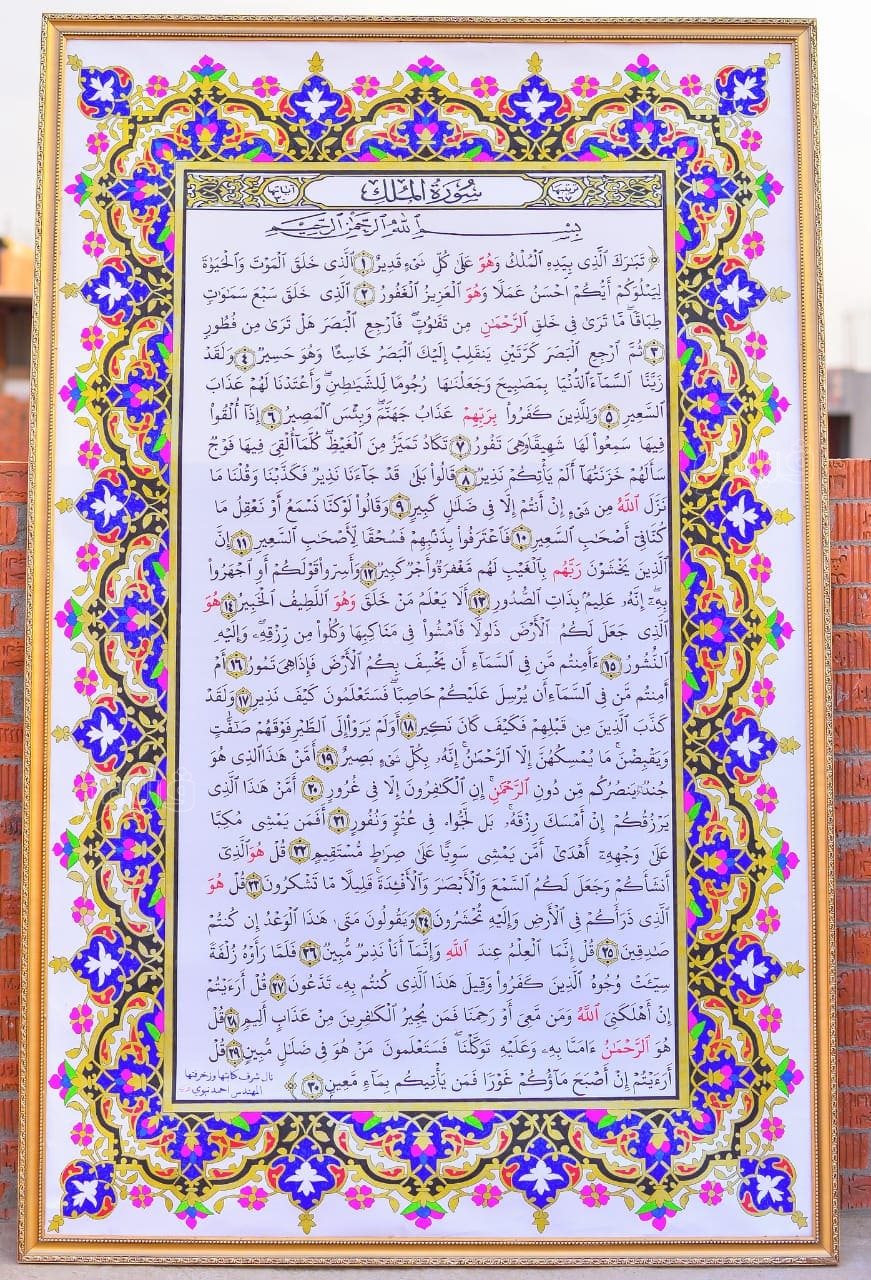 ترتيبها ٦٧ سُورَةُ الْمُلْكِ آياتها ٣٠
بِسْمِ ٱللَّهِ ٱلرَّحْمَٰنِ ٱلرَّحِيمِ
﴿ تَبَٰرَكَ ٱلَّذِى بِيَدِهِ ٱلْمُلْكُ وَهُوَ عَلَىٰ كُلِّ شَىْءٍ قَدِيرٌ ١ ٱلَّذِى خَلَقَ ٱلْمَوْتَ وَٱلْحَيَوٰةَ
لِيَبْلُوَكُمْ أَيُّكُمْ أَحْسَنُ عَمَلًا وَهُوَ ٱلْعَزِيزُ ٱلْغَفُورُ ٢ ٱلَّذِى خَلَقَ سَبْعَ سَمَٰوَٰتٍ
طِبَاقًا مَّا تَرَىٰ فِى خَلْقِ ٱلرَّحْمَٰنِ مِن تَفَٰوُتٍ ۖ فَٱرْجِعِ ٱلْبَصَرَ هَلْ تَرَىٰ مِن فُطُورٍ
٣ ثُمَّ ٱرْجِعِ ٱلْبَصَرَ كَرَّتَيْنِ يَنقَلِبْ إِلَيْكَ ٱلْبَصَرُ خَاسِئًا وَهُوَ حَسِيرٌ ٤ وَلَقَدْ
زَيَّنَّا ٱلسَّمَآءَ ٱلدُّنْيَا بِمَصَٰبِيحَ وَجَعَلْنَٰهَا رُجُومًا لِّلشَّيَٰطِينِ ۖ وَأَعْتَدْنَا لَهُمْ عَذَابَ
ٱلسَّعِيرِ ٥ وَلِلَّذِينَ كَفَرُوا۟ بِرَبِّهِمْ عَذَابُ جَهَنَّمَ ۖ وَبِئْسَ ٱلْمَصِيرُ ٦ إِذَآ أُلْقُوا۟
فِيهَا سَمِعُوا۟ لَهَا شَهِيقًا وَهِىَ تَفُورُ ٧ تَكَادُ تَمَيَّزُ مِنَ ٱلْغَيْظِ ۖ كُلَّمَآ أُلْقِىَ فِيهَا فَوْجٌ
سَأَلَهُمْ خَزَنَتُهَآ أَلَمْ يَأْتِكُمْ نَذِيرٌ ٨ قَالُوا۟ بَلَىٰ قَدْ جَآءَنَا نَذِيرٌ فَكَذَّبْنَا وَقُلْنَا مَا
نَزَّلَ ٱللَّهُ مِن شَىْءٍ إِنْ أَنتُمْ إِلَّا فِى ضَلَٰلٍ كَبِيرٍ ٩ وَقَالُوا۟ لَوْ كُنَّا نَسْمَعُ أَوْ نَعْقِلُ مَا
كُنَّا فِىٓ أَصْحَٰبِ ٱلسَّعِيرِ ١٠ فَٱعْتَرَفُوا۟ بِذَنۢبِهِمْ فَسُحْقًا لِّأَصْحَٰبِ ٱلسَّعِيرِ ١١ إِنَّ
ٱلَّذِينَ يَخْشَوْنَ رَبَّهُم بِٱلْغَيْبِ لَهُم مَّغْفِرَةٌ وَأَجْرٌ كَبِيرٌ ١٢ وَأَسِرُّوا۟ قَوْلَكُمْ أَوِ ٱجْهَرُوا۟
بِهِۦٓ ۖ إِنَّهُۥ عَلِيمٌۢ بِذَاتِ ٱلصُّدُورِ ١٣ أَلَا يَعْلَمُ مَنْ خَلَقَ وَهُوَ ٱللَّطِيفُ ٱلْخَبِيرُ ١٤ هُوَ
ٱلَّذِى جَعَلَ لَكُمُ ٱلْأَرْضَ ذَلُولًا فَٱمْشُوا۟ فِى مَنَاكِبِهَا وَكُلُوا۟ مِن رِّزْقِهِۦ ۖ وَإِلَيْهِ
ٱلنُّشُورُ ١٥ ءَأَمِنتُم مَّن فِى ٱلسَّمَآءِ أَن يَخْسِفَ بِكُمُ ٱلْأَرْضَ فَإِذَا هِىَ تَمُورُ ١٦ أَمْ
أَمِنتُم مَّن فِى ٱلسَّمَآءِ أَن يُرْسِلَ عَلَيْكُمْ حَاصِبًا ۖ فَسَتَعْلَمُونَ كَيْفَ نَذِيرِ ١٧ وَلَقَدْ
كَذَّبَ ٱلَّذِينَ مِن قَبْلِهِمْ فَكَيْفَ كَانَ نَكِيرِ ١٨ أَوَلَمْ يَرَوْا۟ إِلَى ٱلطَّيْرِ فَوْقَهُمْ صَٰٓفَّٰتٍ
وَيَقْبِضْنَ ۚ مَا يُمْسِكُهُنَّ إِلَّا ٱلرَّحْمَٰنُ ۚ إِنَّهُۥ بِكُلِّ شَىْءٍۭ بَصِيرٌ ١٩ أَمَّنْ هَٰذَا ٱلَّذِى هُوَ
جُندٌ يَنصُرُكُم مِّن دُونِ ٱلرَّحْمَٰنِ ۚ إِنِ ٱلْكَٰفِرُونَ إِلَّا فِى غُرُورٍ ٢٠ أَمَّنْ هَٰذَا ٱلَّذِى
يَرْزُقُكُمْ إِنْ أَمْسَكَ رِزْقَهُۥ ۚ بَل لَّجُّوا۟ فِى عُتُوٍّ وَنُفُورٍ ٢١ أَفَمَن يَمْشِى مُكِبًّا
عَلَىٰ وَجْهِهِۦٓ أَهْدَىٰٓ أَمَّن يَمْشِى سَوِيًّا عَلَىٰ صِرَٰطٍ مُّسْتَقِيمٍ ٢٢ قُلْ هُوَ ٱلَّذِىٓ
أَنشَأَكُمْ وَجَعَلَ لَكُمُ ٱلسَّمْعَ وَٱلْأَبْصَٰرَ وَٱلْأَفْـِٔدَةَ ۖ قَلِيلًا مَّا تَشْكُرُونَ ٢٣ قُلْ هُوَ
ٱلَّذِى ذَرَأَكُمْ فِى ٱلْأَرْضِ وَإِلَيْهِ تُحْشَرُونَ ٢٤ وَيَقُولُونَ مَتَىٰ هَٰذَا ٱلْوَعْدُ إِن كُنتُمْ
صَٰدِقِينَ ٢٥ قُلْ إِنَّمَا ٱلْعِلْمُ عِندَ ٱللَّهِ وَإِنَّمَآ أَنَا۠ نَذِيرٌ مُّبِينٌ ٢٦ فَلَمَّا رَأَوْهُ زُلْفَةً
سِيٓـَٔتْ وُجُوهُ ٱلَّذِينَ كَفَرُوا۟ وَقِيلَ هَٰذَا ٱلَّذِى كُنتُم بِهِۦ تَدَّعُونَ ٢٧ قُلْ أَرَءَيْتُمْ
إِنْ أَهْلَكَنِىَ ٱللَّهُ وَمَن مَّعِىَ أَوْ رَحِمَنَا فَمَن يُجِيرُ ٱلْكَٰفِرِينَ مِنْ عَذَابٍ أَلِيمٍ ٢٨ قُلْ
هُوَ ٱلرَّحْمَٰنُ ءَامَنَّا بِهِۦ وَعَلَيْهِ تَوَكَّلْنَا ۖ فَسَتَعْلَمُونَ مَنْ هُوَ فِى ضَلَٰلٍ مُّبِينٍ ٢٩ قُلْ
أَرَءَيْتُمْ إِنْ أَصْبَحَ مَآؤُكُمْ غَوْرًا فَمَن يَأْتِيكُم بِمَآءٍ مَّعِينٍۭ ٣٠ ﴾
نال شرف كتابتها وزخرفتها
المهندس أحمد نبوي